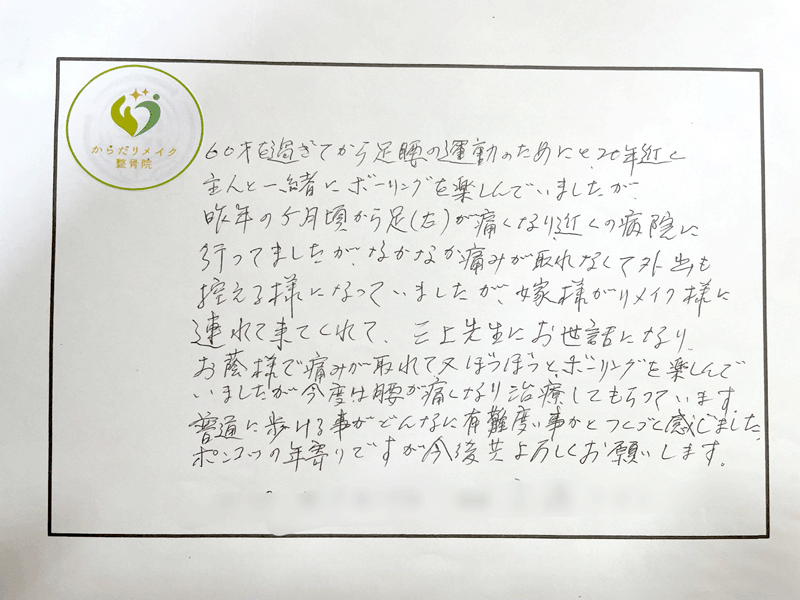 からだリメイク
整骨院
60才を過ぎてから足腰の運動のためにと、20年近く
主人と一緒にボーリングを楽しんでいましたが
昨年の7月頃から足(右)が痛くなり近くの病院に
行ってましたが、なかなか痛みが取れなくて外出も
控える様になっていましたが、嫁様がリメイク様に
連れて来てくれて、三上先生にお世話になり
お蔭様で痛みが取れて又ぼつぼつと、ボーリングを楽しんで
いましたが今度は腰が痛くなり治療してもらっています。
普通に歩ける事がどんなに有難度い事かとつくづく感じました。
ポンコツの年寄りですが今後共よろしくお願いします。